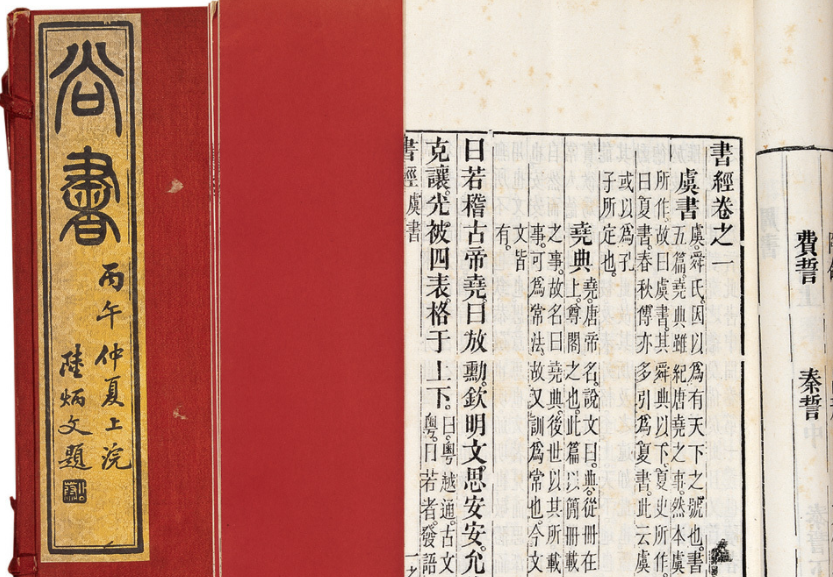 尚書
丙午仲夏上浣
陸炳文題
費誓
秦誓
書經卷之一
虞書
虞。舜氏。因以爲有天下之號也。書
五篇。堯典雖紀唐堯之事。然本虞
所作。故曰虞書。其舜典以下。夏史所作。
曰夏書。春秋傳亦多引爲夏書。此云虞
或以爲孔
子所定也。
堯典
堯。唐帝名。說文曰。典。從冊在
上。尊閣之也。此篇以簡冊載
之事。故名曰堯典。後世以其所載
事。可爲常法。故又訓爲常也。今文
文皆
有。
曰若稽古帝堯。曰放勳。欽明文。思安安。允
克讓。光被四表。格于上下。
曰。粵。越通。古文
粵。曰若者。發語
書經 虞書 一之